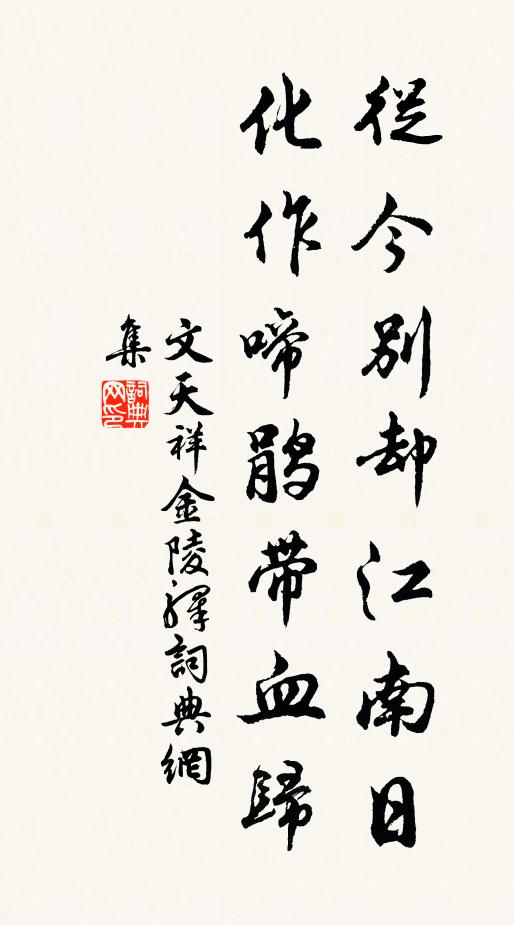 從今別却江南日
化作啼鹃帶血歸
文天祥金陵驛詞典網
集
詞典
网印